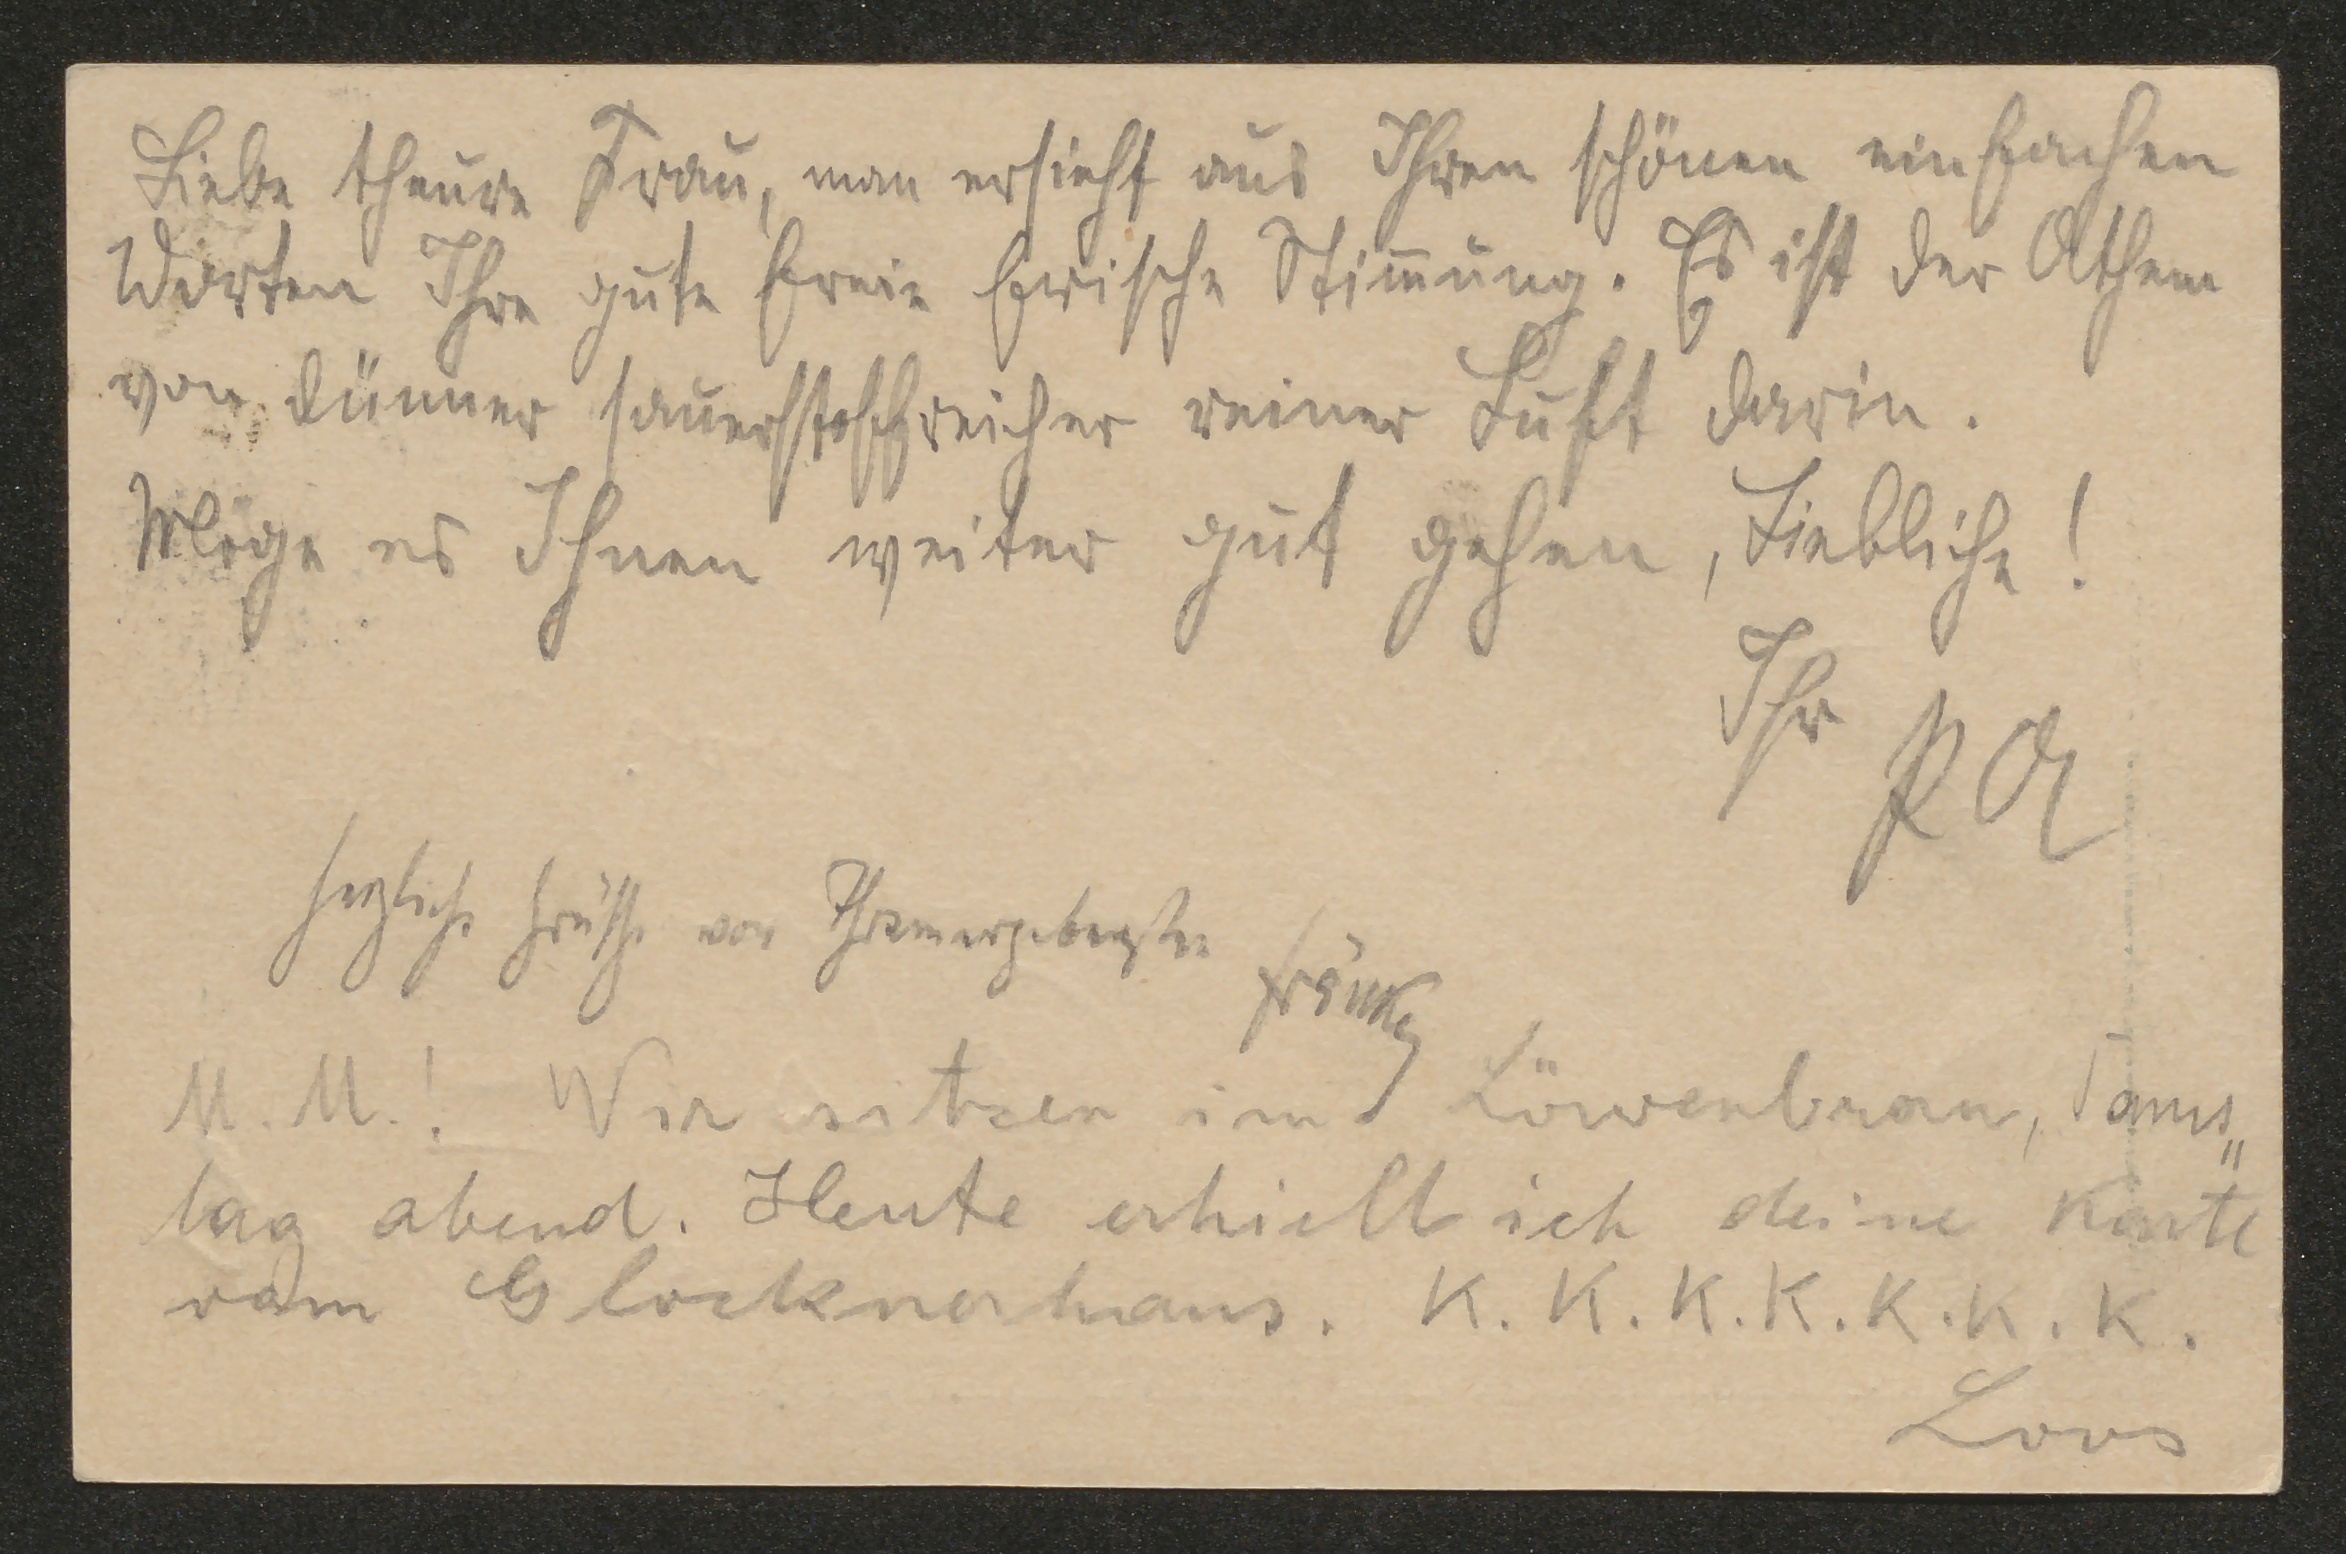 Liebe theure Frau, man ersieht aus Ihren schönen einfachen
Worten Ihre gute freie frische Stimmung. Es ist der Athem
von dünner sauerstoffreicher reiner Luft darin.
Möge es Ihnen weiter gut gehen, Liebliche!
Ihr PA
Herzliche Grüße von Ihrem ergebensten
M. M.! Wir sitzen im Löwenbrau, Sams„
tag abend. Heute erhielt ich deine Karte
vom Glocknerhaus. K. K. K. K. K. K. K.
Loos